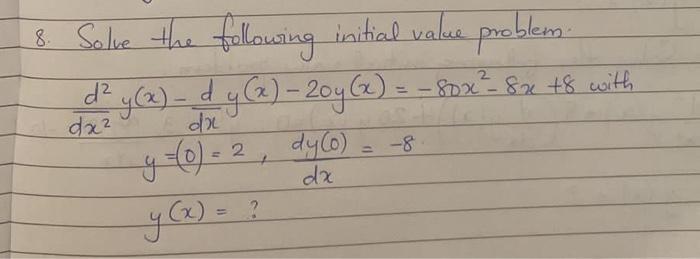 8. Solve the following initial value problem.
d²/dx² y(x) - d/dx y(x) - 20y(x) = -80x² - 8x + 8 with
y=(0) = 2, dy(0)/dx = -8.
y(x) = ?